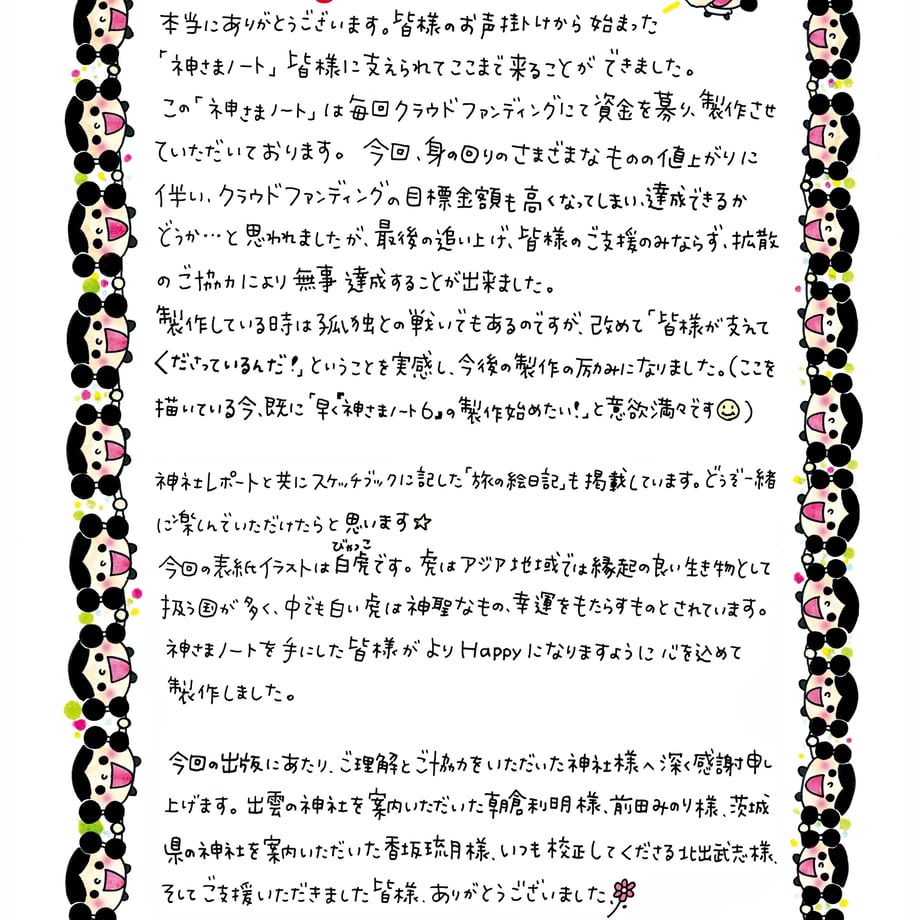 本当にありがとうございます。皆様のお声掛けから始まった
「神さまノート」皆様に支えられてここまで来ることができました。
この「神さまノート」は毎回クラウドファンディングにて資金を募り、製作させ
ていただいております。今回、身の回りのさまざまなものの値上がりに
伴い、クラウドファンディングの目標金額も高くなってしまい、達成できるか
どうか…と思われましたが、最後の追い上げ、皆様のご支援のみならず、拡散
のご協力により無事達成することが出来ました。
製作している時は孤独との戦いでもあるのですが、改めて「皆様が支えて
くださっているんだ!」ということを実感し、今後の製作の励みになりました。(ここを
描いている今、既に「早く『神さまノート6』の製作始めたい!」と意欲満々です☺)
神社レポートと共にスケッチブックに記した「旅の絵日記」も掲載しています。どうぞ一緒
に楽しんでいただけたらと思います☆
びゃっこ
今回の表紙イラストは白虎です。虎はアジア地域では縁起の良い生き物として
扱う国が多く、中でも白い虎は神聖なもの、幸運をもたらすものとされています。
神さまノートを手にした皆様がよりHappyになりますように心を込めて
製作しました。
今回の出版にあたり、ご理解とご協力をいただいた神社様へ深く感謝申し
上げます。出雲の神社を案内いただいた朝倉利明様、前田みのり様、茨城
県の神社を案内いただいた香坂琉月様、いつも校正してくださる北出武志様、
そしてご支援いただきました皆様、ありがとうございました。